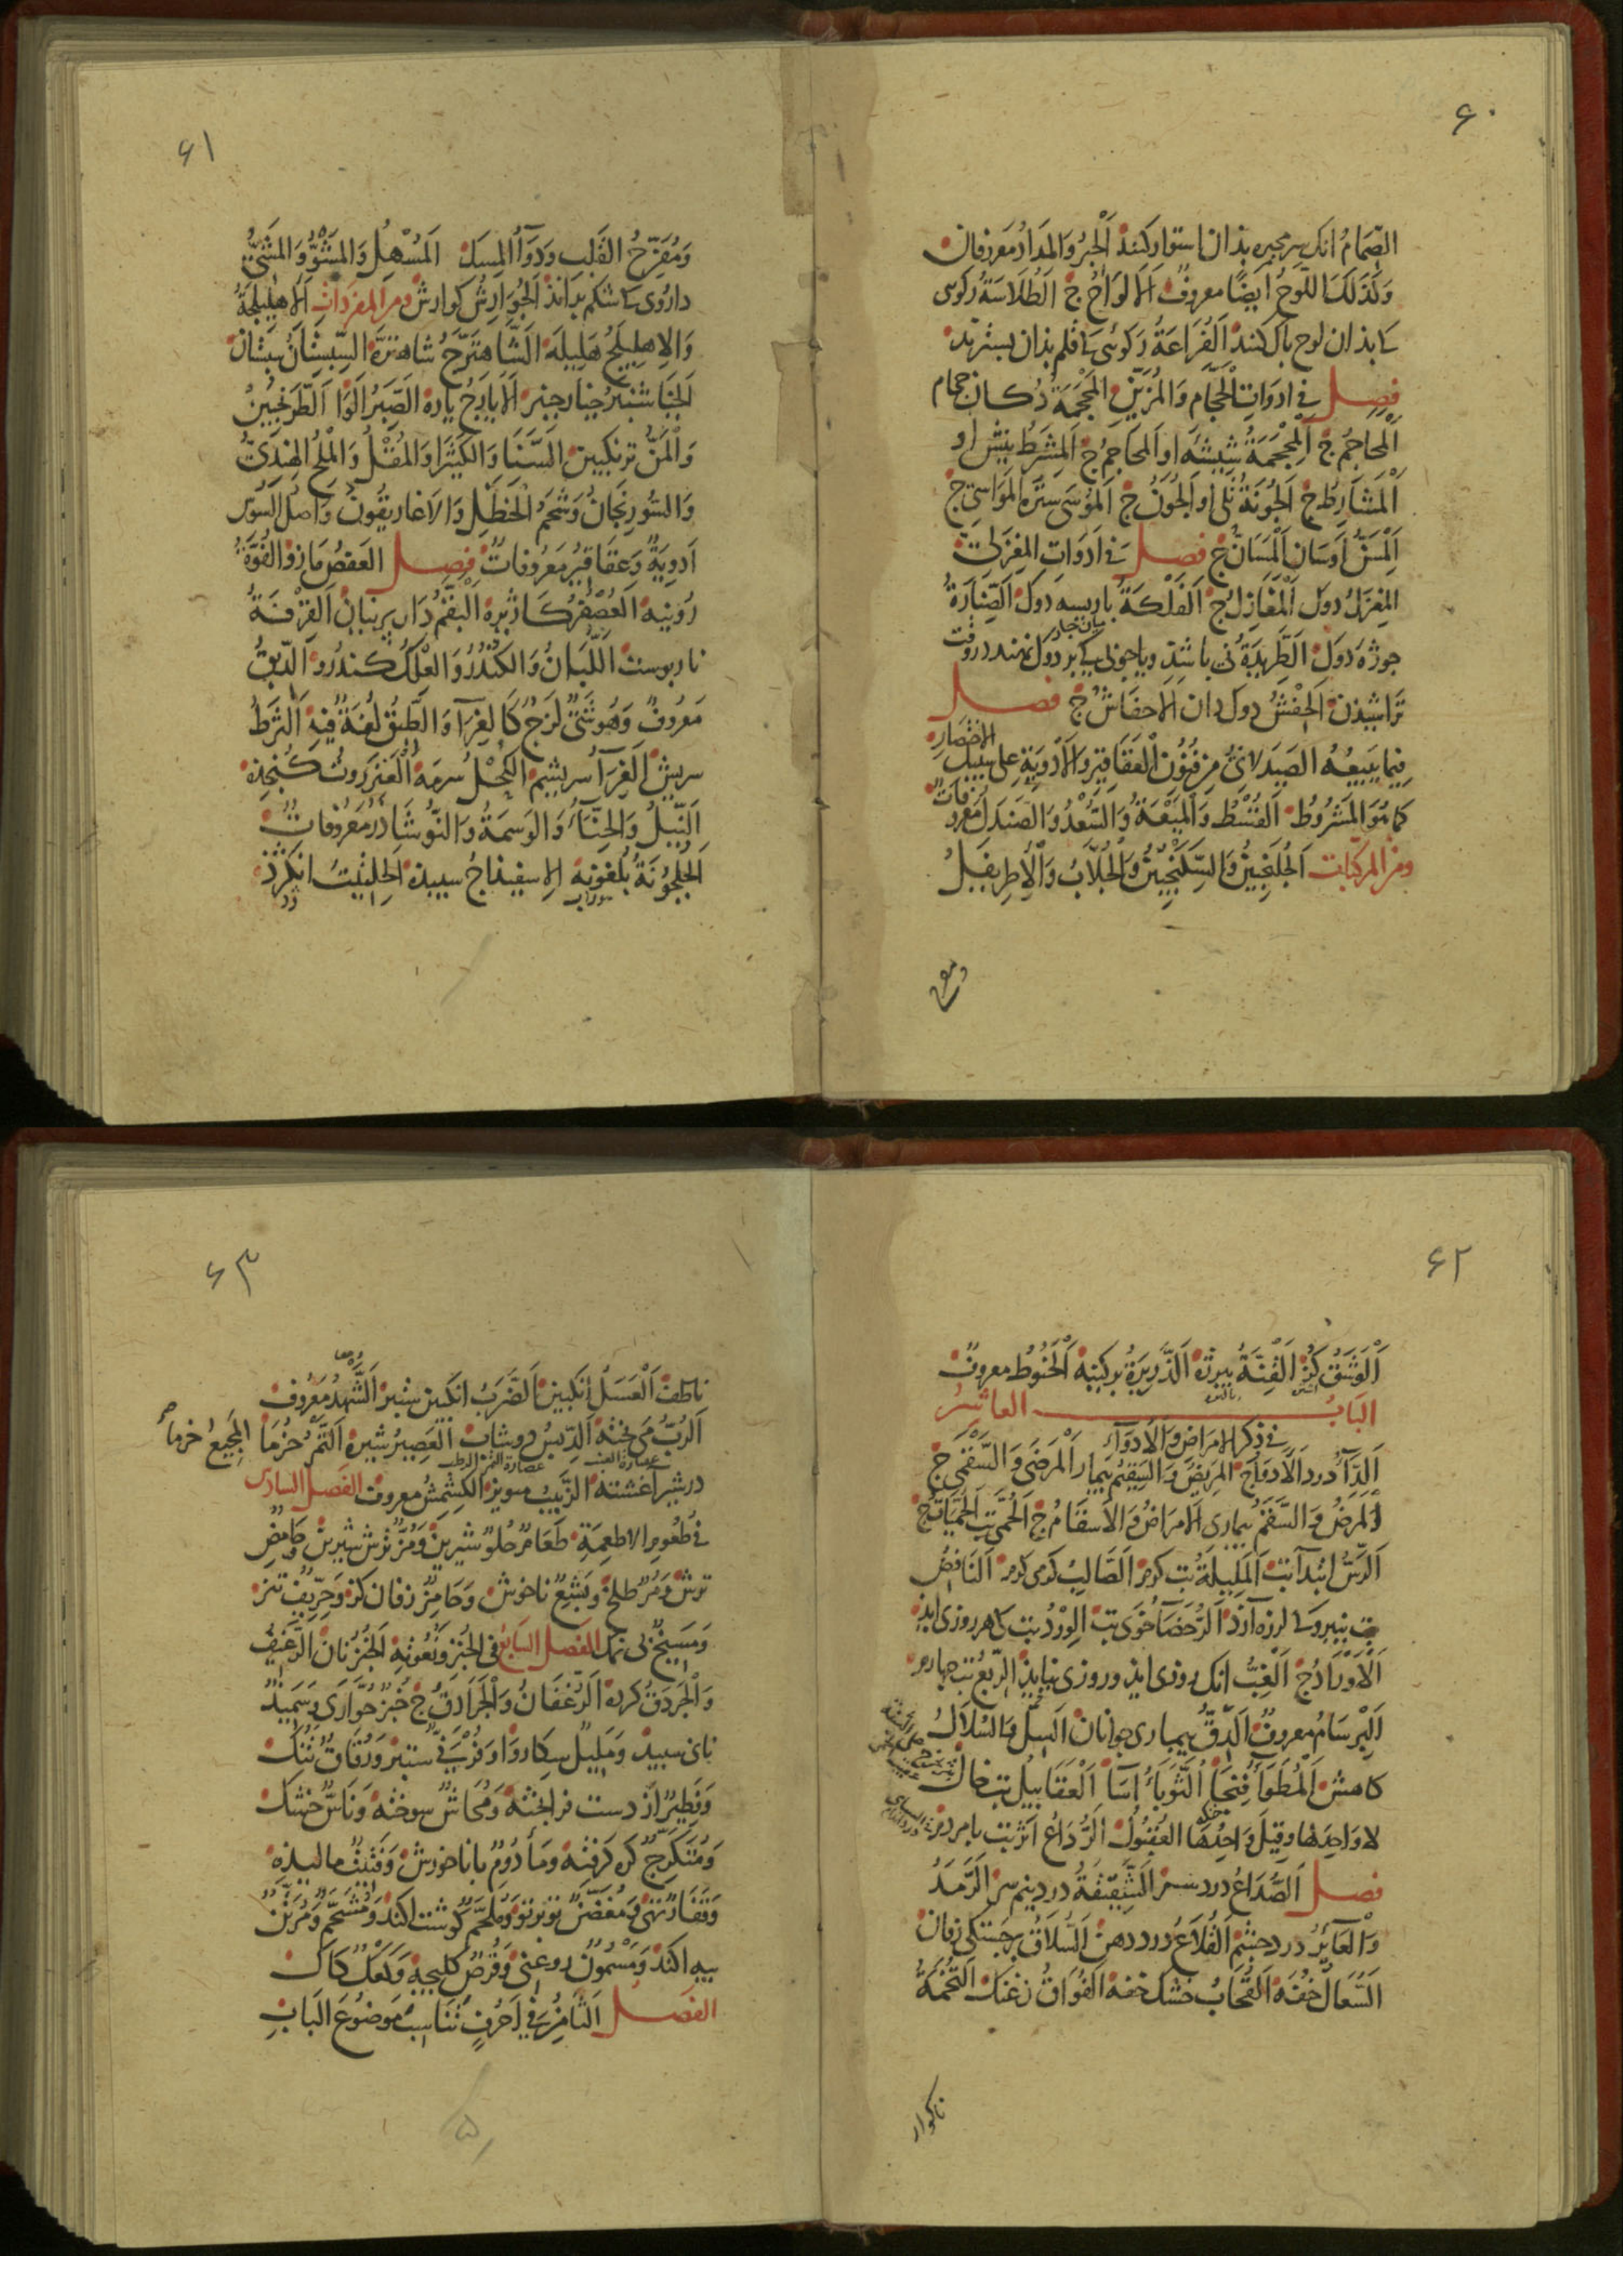 ۶۰
الصِّمَامُ انک سر محبره بذان استوار کنند اَلْحِبْرُ وَالمِدَادُ مَعروفان
وَكَذَلِكَ اللَّوْحُ اَيضًا معروفٌ اَلالوَاحُ ج الطَّلَّاسَةُ رکوی
کے بذان لوح باک کنند اَلْفَرَاعَةُ رَکوئی کے قلم بذان بسترند
فصل فِی ادوَاتِ الْحَجَّامِ وَالمُزَيِّنِ المَحْجَمَةُ دُکان حجام
اَلْمَحَاجِمُ ج اَلْمِحْجَمَةُ شِیشَهِٔ او اَلمَحَاجِمُ ج اَلمِشرَطُ نیش او
اَلْمَشَارِطُ ج اَلجُونَةُ تُلی او اَلجُوَنُ ج اَلمُوسَی ستره اَلمَوَاسِی ج
اَلْمِسَنُّ اوسَان اَلْمَسَانُّ ج فصل فی ادَوَاتِ المِغزَلِ
المِغزَلُ دول اَلْمَغَازِلُ ج اَلفَلْكَةُ باریسه دَوک اَلصِّنَارَةُ
جوزه دَوک اَلطَّرِيدَةُ نی باشد ویا جوبی کے بر دَوک نهند در وقت
تراشیدن اَلحِفْشُ دوک دان الاَحفَاشُ ج فصل
فِيمَا يَبِيعُهُ الصَيدَلانِیُّ مِن فُنُونِ الْعَقَاقِيرِ وَالاَدوِيَةِ عَلی سَبِيلِ الاختِصَارِ
كَمَا هُوَ المَشرُوطُ اَلقُسْطُ وَالمَيْعَةُ وَالسُّعْدُ وَالصَندَلُ مَعروفَاتٌ
ومن المرکبات اَلجُلَنْجَبِينُ وَالسِّكَنْجَبِينُ وَالْجُلَّابُ وَالْاِطرِيفِلُ
ومفرح
۶۱
وَمُفَرِّحُ القَلبِ وَدَوَاءُ المِسكِ اَلمُسْهِلُ وَالمَشُوُّ وَالمَشِیُّ
داروی کے شکم براند اَلجُوَارِشُ کوارش ومن المفردات اَلاهلِيلَجَةُ
وَالاِهلِيلَجُ هَلِيلَه اَلشَّاهتَرَجُ شاهتره السِّبِسْتَانُ سبستان
اَلخِيَارشَنبَرُ خیارجنبر اَلاَیَارِجُ یاره اَلصَّبِرُ اَلْوَا اَلطَّرَنجُبِينُ
وَالْمَنُّ ترنکبین اَلسَّنَا وَالكَثِيرَا وَالمُقْلُ وَالْمِلْحُ الهِندِیُّ
وَالسُّورِنجَانُ وَشَحمُ الْحَنظَلِ وَالاَغَارِيقُونُ وَاَصْلُ السُّوسِ
اَدوِيَةٌ وَعَقَاقِيرُ مَعرُوفَاتٌ فصل العَفصُ مَازو الفُوَّةُ
رُوينه اَلعُصْفُرُ کاژیره اَلْبَقَّمُ دار پرنیان اَلقِرْفَةُ
نارپوست اَللُّبَانُ وَالكُنْدُرُ وَالعِلْكُ کندرو اَلدِّبْقُ
مَعرُوفٌ وَهُوَ شَیءٌ لَزِجٌ كَالغِرَاءِ وَالطِّبْقُ لُغَةٌ فِيهِ اَلشَّرَطُ
سریش اَلغِرَاءُ سریشم اَلكُحْلُ سرمه اَلعَنزَرُوتُ کنجذه
اَلنِّيلُ وَالحِنَّاءُ وَالوَسمَةُ وَالنُّوشَادُرُ مَعرُوفاتٌ
اَلحُلجُونَةُ بُلغونه الاسفیذاجُ سبیذه اَلحِلتِيتُ انکژذ
۶۲
اَلْوَشَقُ کژ اَلْقِنَّةُ بیرزه اَلذَّرِيرَةُ برکینه اَلحَنُوطُ معروف
البابُ العاشرُ
فی ذکر الامراض والادواء
اَلدَّاءُ درد اَلاَدوَاءُ ج المَرِيضُ وَالسَّقِيمُ بیمار اَلْمَرضَی وَالسَّقْمَی ج
اَلْمَرَضُ وَالسَّقَمُ بیماری اَلامرَاضُ وَالاَسقَامُ ج اَلحُمَّی تب اَلحُمَّيَاتُ ج
اَلرَّسُّ ابتداء تب اَلمَلِيلَةُ تب کرم اَلصَّالِبُ کرمی کرم اَلنَافِضُ
تب نیرو کے لرزه آرد اَلرُّحَضَاءُ خوی تب اَلوِرْدُ تب کے هر روزی اید
اَلاَوْرَادُ ج اَلغِبُّ انک روزی اید وروزی نیاید اَلرِّبعُ تب چهارم
اَلبِرسَامُ معروف اَلدِّقُّ بیماری جوانان اَلسِلُّ وَالسُّلَالُ
کاهش اَلْمُطَوَاءُ فنجا اَلثُّوَبَاءُ آسا اَلْعَقَابِيلُ تب خال
لا وَاحِدَ لها وَقِيلَ وَاحِدُهَا العُقبُولُ اَلرُّدَاعُ اثر تب بامردم
فصل اَلصُّدَاعُ درد سر اَلشَّقِيقَةُ درد نیم سر اَلرَّمَدُ
وَالْعَائِرُ درد چشم اَلقُلَاعُ درد دهن اَلسُّلَاقُ برجستکی زفان
اَلسُّعَالُ خفه اَلقُحَابُ خشک خفه اَلفُوَاقُ زغنک اَلتُّخَمَةُ
ناکوار
۶۳
ناطف اَلْعَسَلُ انکبین اَلضَّرَبُ انکبین سبید اَلشَّهْدُ مَعروف
اَلرُّبُّ می پخته اَلدِّبسُ دوشاب اَلعَصِيرُ شیره اَلتَّمْرُ خُرما اَلمَجِيعُ خرما
عصارة العنب عصارة التمر الرطب
در شیر آغشته اَلزَّبِيبُ مویز اَلكِشْمِشُ معروف الفصل السادس
فی طُعُومِ الاطعِمَةِ طَعَامٌ حُلوٌ شیرین وَمُزٌّ ترش شیرین وَحَامِضٌ
ترش وَمُرٌّ طلخ وَبَشِعٌ ناخوش وَحَامِزٌ زفان کز وَحِرِّيفٌ تیز
وَمَسِيخٌ بی نمک الفصل السابع فی الخبز ونُعُوتِهِ اَلخُبْزُ نان اَلرَّغِيفُ
وَالْجَردَقُ کرده اَلرُّغفَانُ وَالْجَرَادِقُ ج خُبْزٌ حُوَّارَی وَسَمِيذٌ
نان سبید وَمَلِيلٌ سکاروا وَفُرْنِیٌّ ستبر وَرُقَاقٌ تُنُک
وَفَطِيرٌ از دست فرا پخته وَمُحَاشٌ سوخته وَنَاسٌّ خشک
وَمُتَكَرِّجٌ کره کرفته وَمَأدُومٌ با ناخورش وَفَتِيتٌ مالیده
وَقَفَارٌ تهی وَمُغَضَّنٌ تو بر تو وَمُلَحَّمٌ کوشت اکند وَمُشَحَّمٌ وَمُرَبَّبٌ
پیه اکند وَمَسْمُونٌ روغنی وَقُرْصٌ کلیجه وَكَعْكٌ کاک
الفصل الثَامِنُ فِی اَحرُفٍ تُنَاسِبُ مَوضُوعَ البَابِ